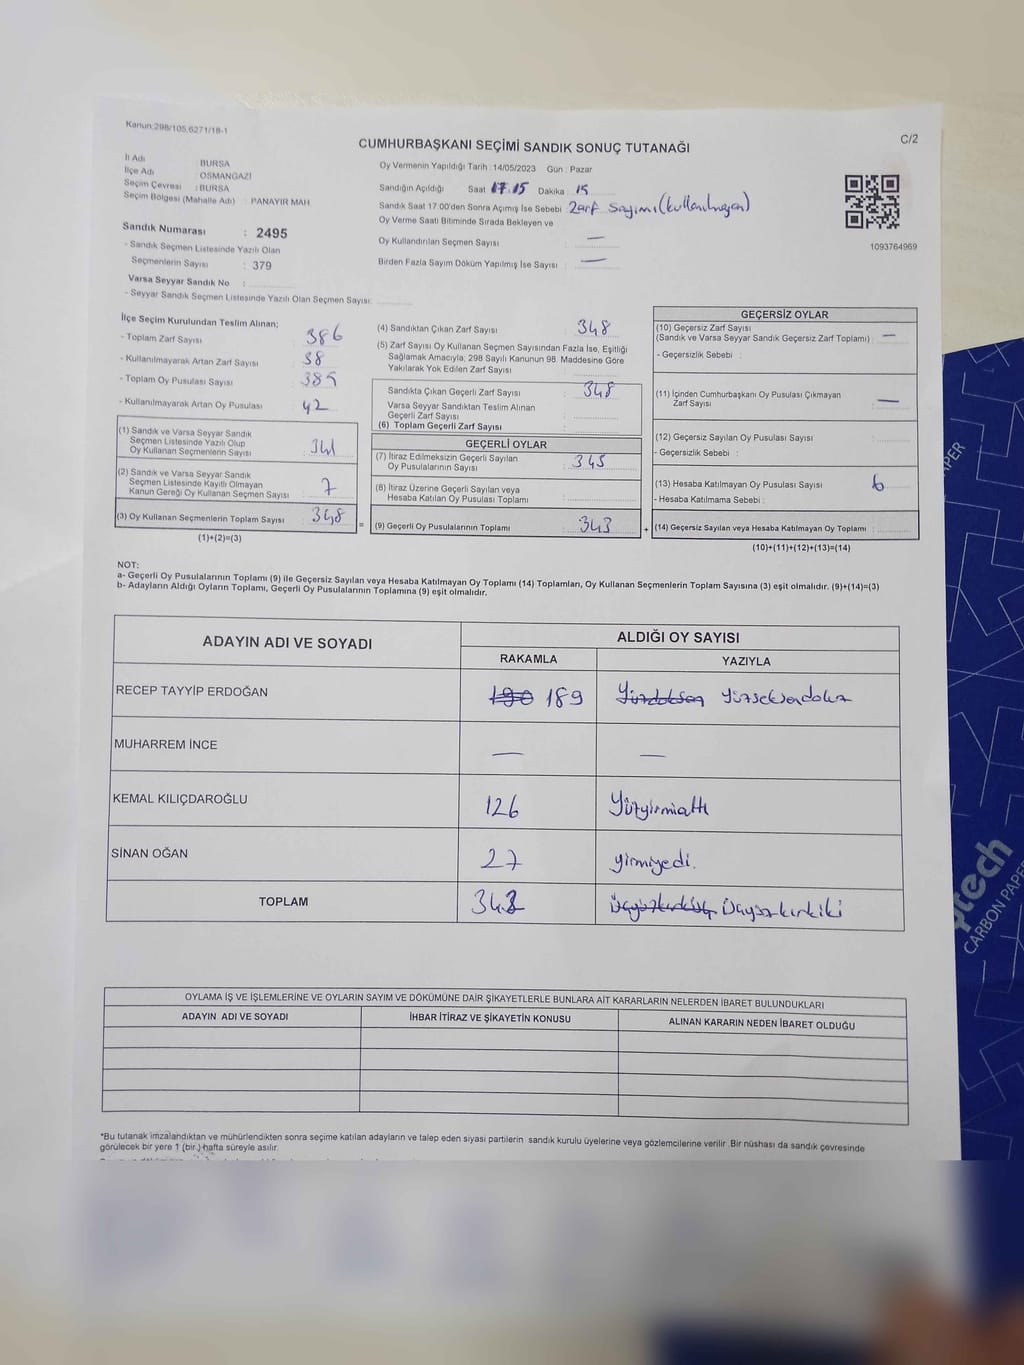 Kanun:298/105,6271/18-1
C/2
CUMHURBAŞKANI SEÇİMİ SANDIK SONUÇ TUTANAĞI
İl Adı BURSA
İlçe Adı OSMANGAZİ
Seçim Çevresi : BURSA
Seçim Bölgesi (Mahalle Adı) : PANAYIR MAH
Oy Vermenin Yapıldığı Tarih :14/05/2023 Gün : Pazar
Sandığın Açıldığı Saat 17:15 Dakika : 15
Sandık Saat 17:00'den Sonra Açımış İse Sebebi Zarf Sayımı (kullanılmayan)
Oy Verme Saati Bitiminde Sırada Bekleyen ve
Oy Kullandırılan Seçmen Sayısı : —
Birden Fazla Sayım Döküm Yapılmış İse Sayısı : —
1093764969
Sandık Numarası : 2495
- Sandık Seçmen Listesinde Yazılı Olan
Seçmenlerin Sayısı : 379
Varsa Seyyar Sandık No :
- Seyyar Sandık Seçmen Listesinde Yazılı Olan Seçmen Sayısı:
İlçe Seçim Kurulundan Teslim Alınan;
- Toplam Zarf Sayısı : 386
- Kullanılmayarak Artan Zarf Sayısı : 38
- Toplam Oy Pusulası Sayısı : 385
- Kullanılmayarak Artan Oy Pusulası : 42
(1) Sandık ve Varsa Seyyar Sandık
Seçmen Listesinde Yazılı Olup
Oy Kullanan Seçmenlerin Sayısı : 341
(2) Sandık ve Varsa Seyyar Sandık
Seçmen Listesinde Kayıtlı Olmayan
Kanun Gereği Oy Kullanan Seçmen Sayısı : 7
(3) Oy Kullanan Seçmenlerin Toplam Sayısı : 348
(1)+(2)=(3)
(4) Sandıktan Çıkan Zarf Sayısı : 348
(5) Zarf Sayısı Oy Kullanan Seçmen Sayısından Fazla İse, Eşitliği
Sağlamak Amacıyla; 298 Sayılı Kanunun 98. Maddesine Göre
Yakılarak Yok Edilen Zarf Sayısı :
Sandıkta Çıkan Geçerli Zarf Sayısı : 348
Varsa Seyyar Sandıktan Teslim Alınan
Geçerli Zarf Sayısı :
(6) Toplam Geçerli Zarf Sayısı :
GEÇERLİ OYLAR
(7) İtiraz Edilmeksizin Geçerli Sayılan
Oy Pusulalarının Sayısı : 345
(8) İtiraz Üzerine Geçerli Sayılan veya
Hesaba Katılan Oy Pusulası Toplamı :
= (9) Geçerli Oy Pusulalarının Toplamı : 343 +
GEÇERSİZ OYLAR
(10) Geçersiz Zarf Sayısı
(Sandık ve Varsa Seyyar Sandık Geçersiz Zarf Toplamı) : —
- Geçersizlik Sebebi :
(11) İçinden Cumhurbaşkanı Oy Pusulası Çıkmayan
Zarf Sayısı : —
(12) Geçersiz Sayılan Oy Pusulası Sayısı :
- Geçersizlik Sebebi :
(13) Hesaba Katılmayan Oy Pusulası Sayısı : 6
- Hesaba Katılmama Sebebi :
(14) Geçersiz Sayılan veya Hesaba Katılmayan Oy Toplamı :
(10)+(11)+(12)+(13)=(14)
NOT:
a- Geçerli Oy Pusulalarının Toplamı (9) ile Geçersiz Sayılan veya Hesaba Katılmayan Oy Toplamı (14) Toplamları, Oy Kullanan Seçmenlerin Toplam Sayısına (3) eşit olmalıdır. (9)+(14)=(3)
b- Adayların Aldığı Oyların Toplamı, Geçerli Oy Pusulalarının Toplamına (9) eşit olmalıdır.
ADAYIN ADI VE SOYADI ALDIĞI OY SAYISI
RAKAMLA YAZIYLA
RECEP TAYYİP ERDOĞAN 190 189 Yüzdoksan Yüzseksendokuz
MUHARREM İNCE — —
KEMAL KILIÇDAROĞLU 126 Yüzyirmialtı
SİNAN OĞAN 27 yirmiyedi.
TOPLAM Üçyüzkırkiki
OYLAMA İŞ VE İŞLEMLERİNE VE OYLARIN SAYIM VE DÖKÜMÜNE DAİR ŞİKAYETLERLE BUNLARA AİT KARARLARIN NELERDEN İBARET BULUNDUKLARI
ADAYIN ADI VE SOYADI İHBAR İTİRAZ VE ŞİKAYETİN KONUSU ALINAN KARARIN NEDEN İBARET OLDUĞU
*Bu tutanak imzalandıktan ve mühürlendikten sonra seçime katılan adayların ve talep eden siyasi partilerin sandık kurulu üyelerine veya gözlemcilerine verilir .Bir nüshası da sandık çevresinde
görülecek bir yere 1 (bir ) hafta süreyle asılır.
CARBON PAPER